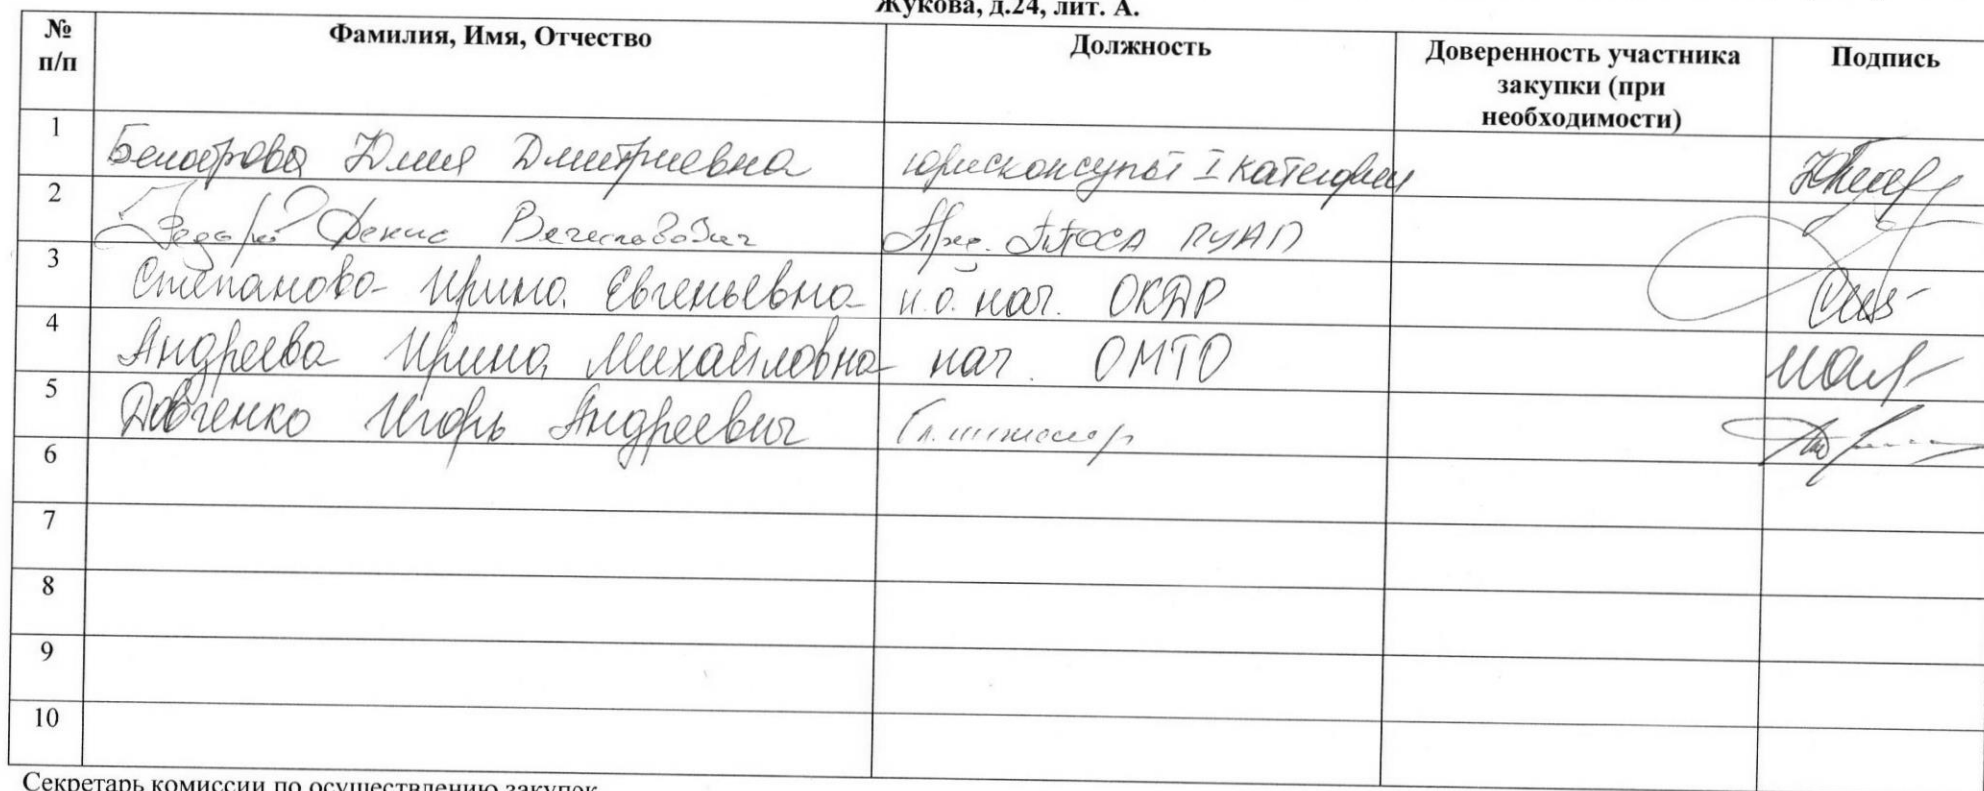 Жукова, д.24, лит. А.
№ п/п Фамилия, Имя, Отчество Должность Доверенность участника закупки (при необходимости) Подпись
1 Юлия Дмитриевна юрисконсульт I категории
2 Денис Вячеславович ГУАП
3 Степанова Ирина Евгеньевна и.о. нач. ОКДР
4 Андреева Ирина Михайловна нач. ОМТО
5 Довченко Игорь Андреевич Гл. инженер
6
7
8
9
10
Секретарь комиссии по осуществлению закупок